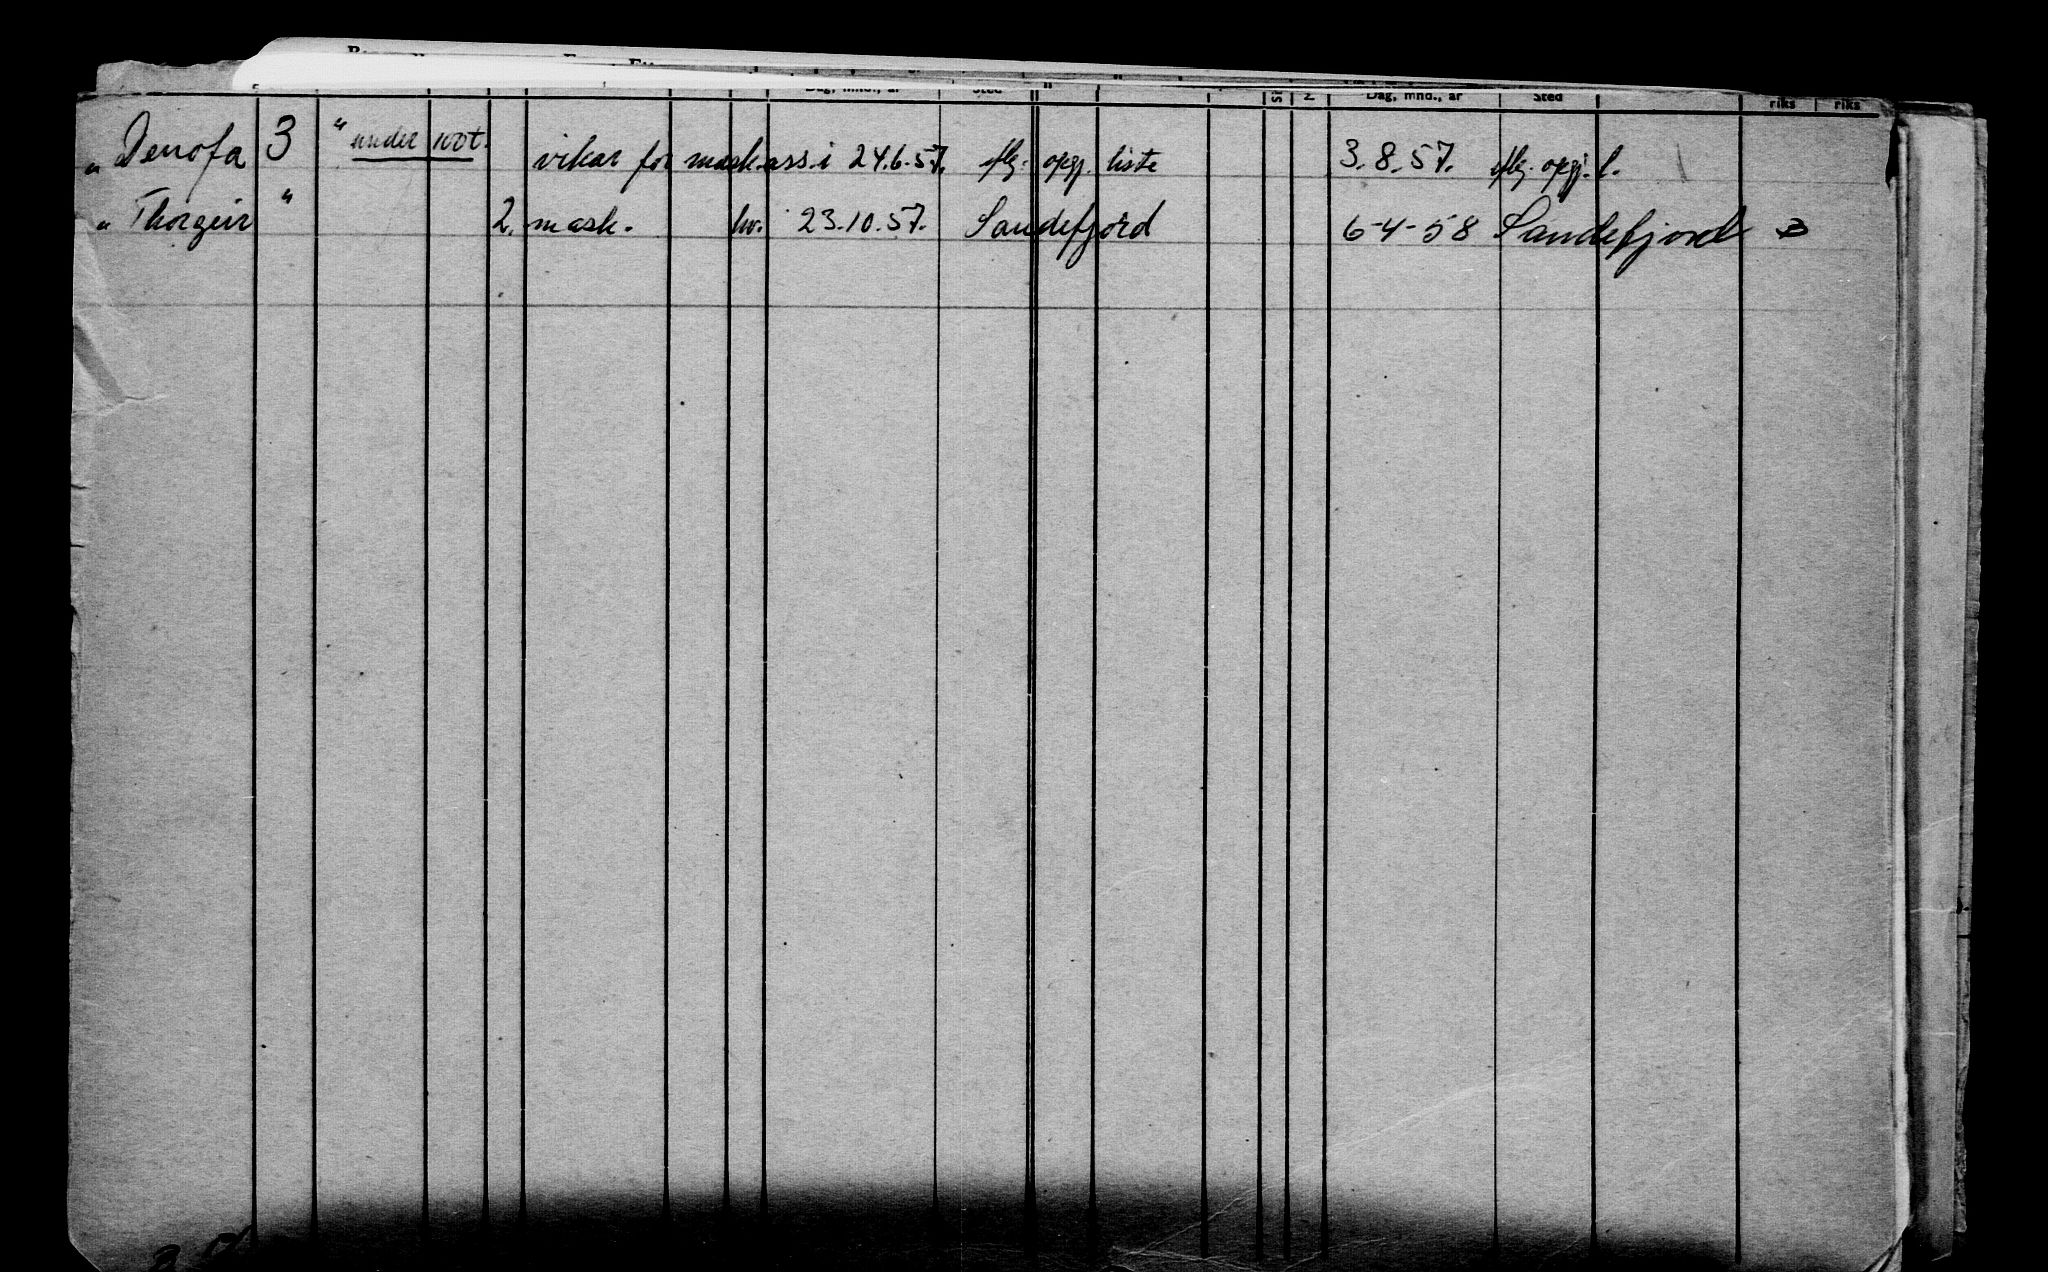 Dag, mnd., år Sted Dag, mnd., år Sted riks riks
" Denofa 3 " under 100t. vikar for mask.ass. i 24.6.57. iflg. oppg. liste 3.8.57. iflg. oppg. l.
" Thorgeir " 2. mask. hv. 23.10.57. Sandefjord 6-4-58 Sandefjord